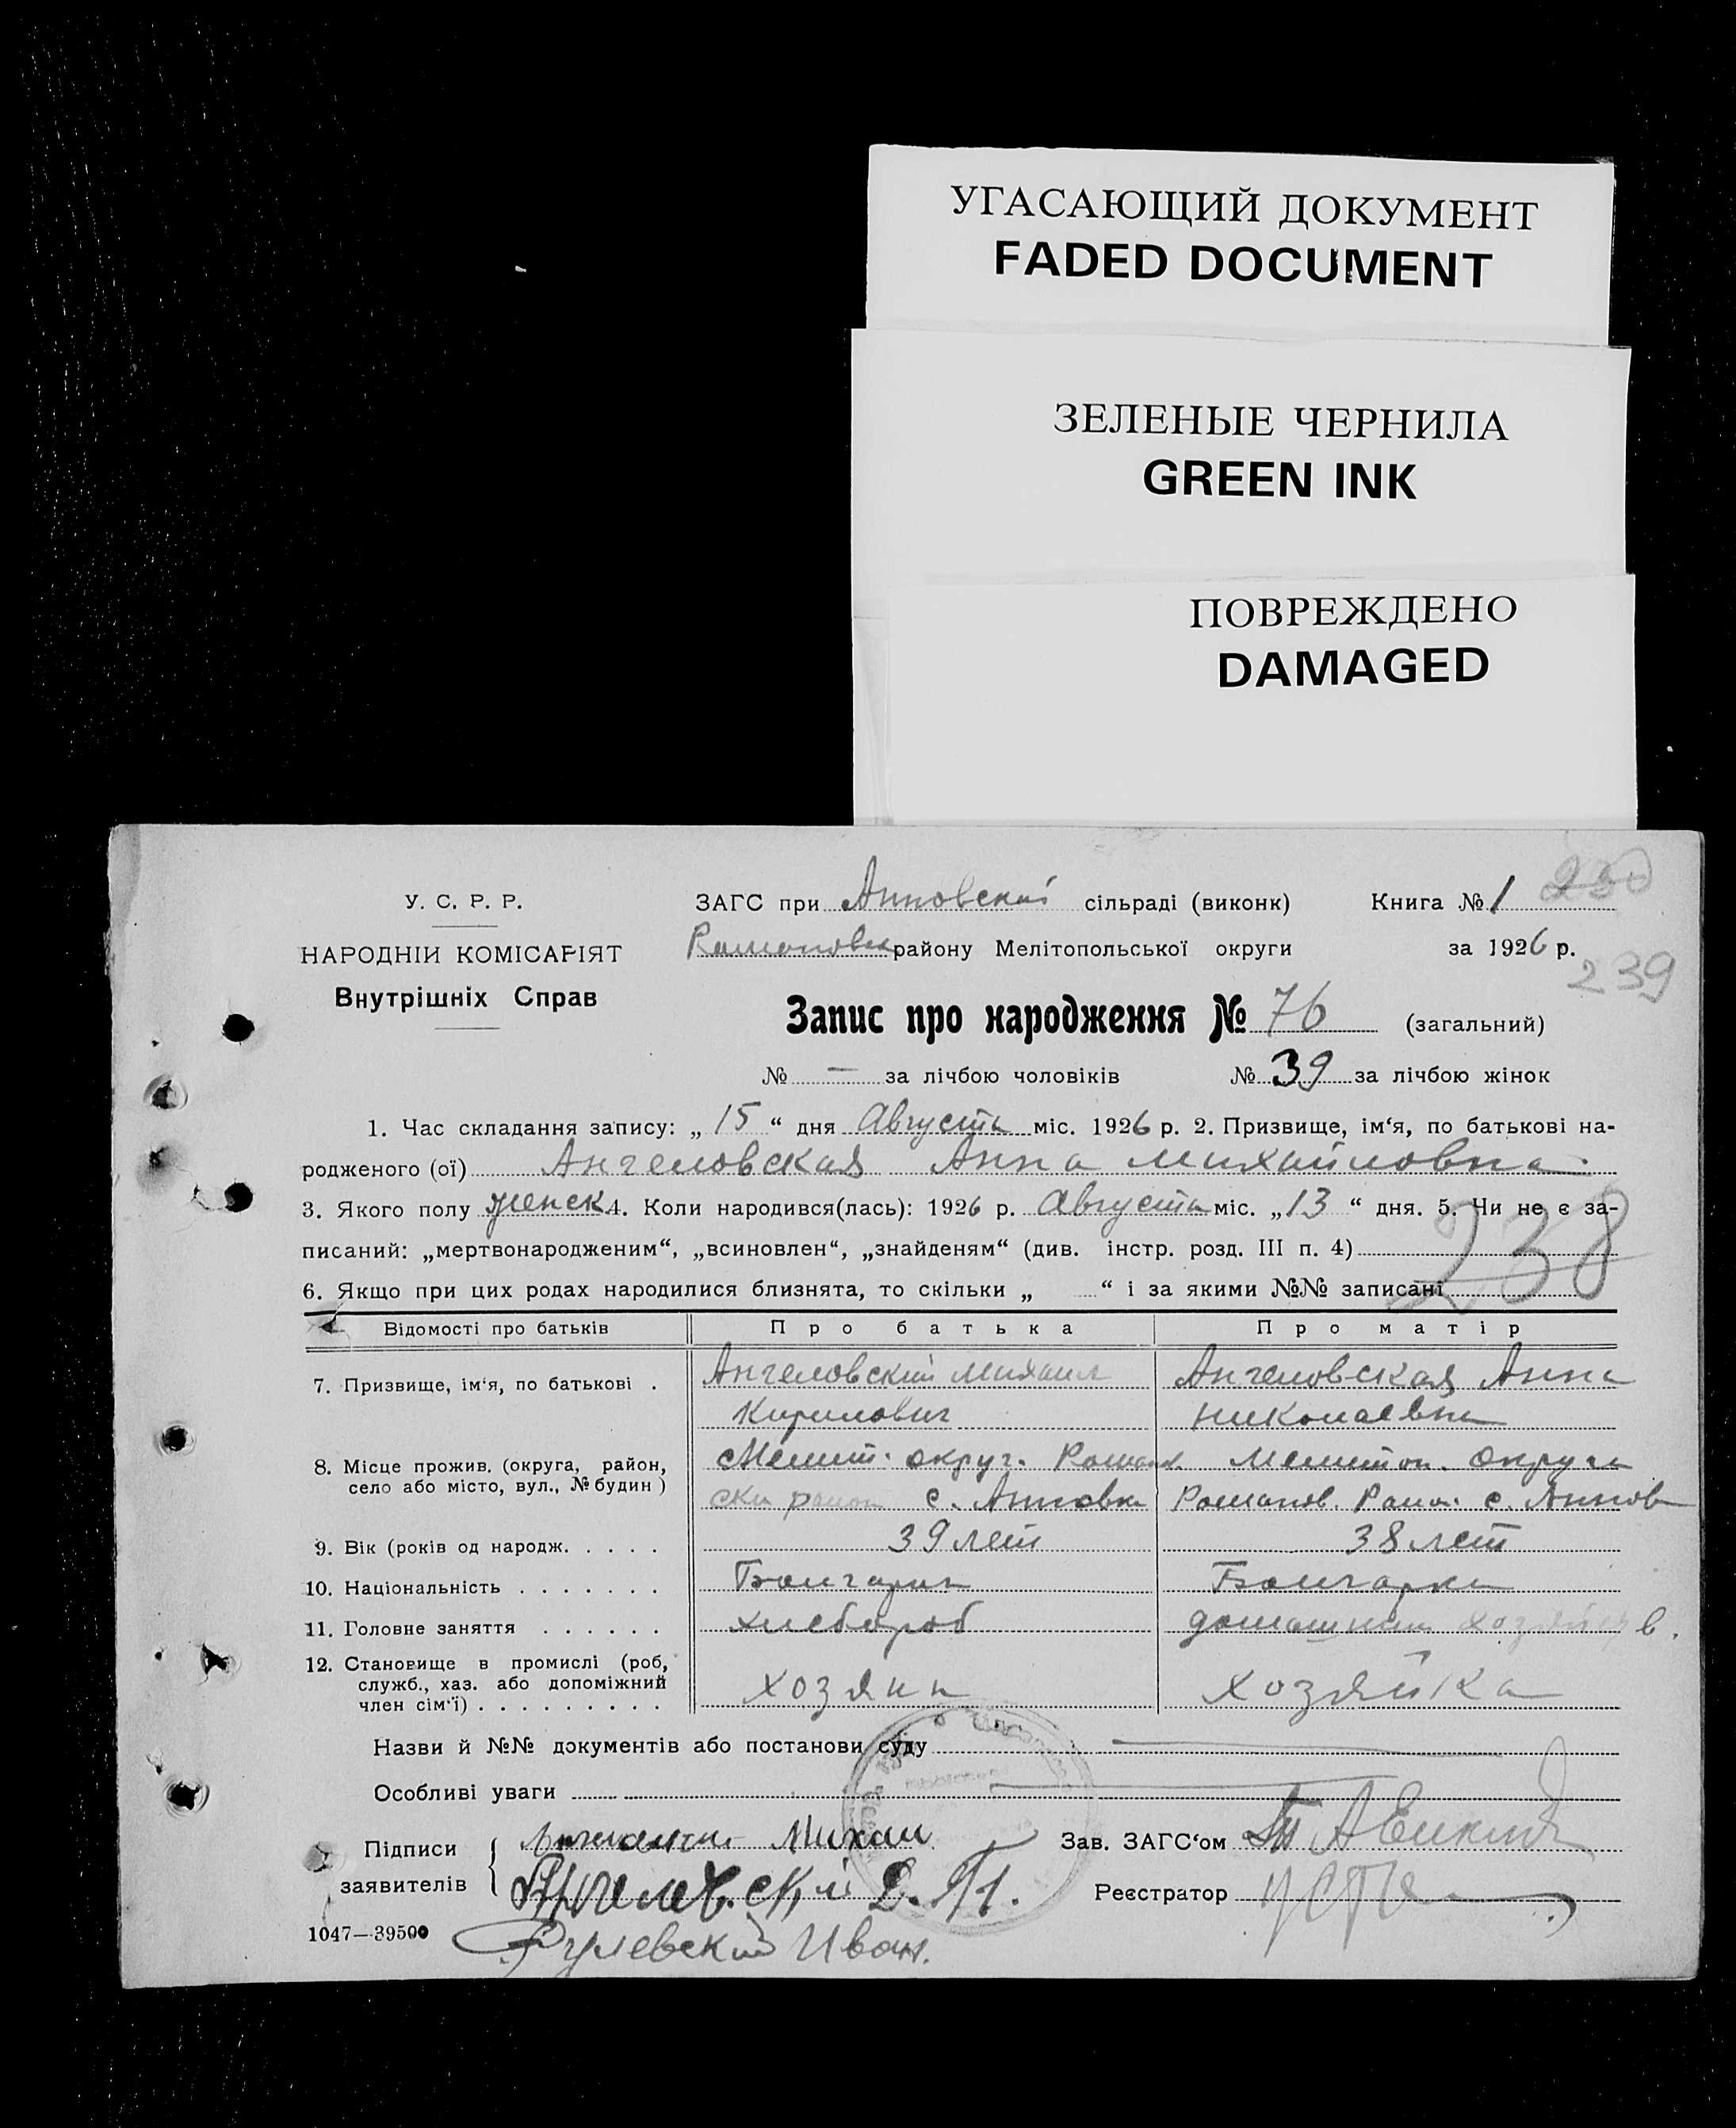 УГАСАЮЩИЙ ДОКУМЕНТ
FADED DOCUMENT
ЗЕЛЕНЫЕ ЧЕРНИЛА
GREEN INK
ПОВРЕЖДЕНО
DAMAGED
У. С. Р. Р.
НАРОДНІЙ КОМІСАРІЯТ
Внутрішніх Справ
ЗАГС при Анновской сільраді (виконк) Книга № 1 230
Романовск району Мелітопольської округи за 1926 р.
239
Запис про народження № 76 (загальний)
№ — за лічбою чоловіків № 39 за лічбою жінок
1. Час складання запису: „ 15 “ дня Августа міс. 1926 р. 2. Призвище, ім‘я, по батькові на-
родженого (ої) Ангеловская Анна Михайловна.
3. Якого полу женск 4. Коли народився(лась): 1926 р. Августа міс. „ 13 “ дня. 5. Чи не є за-
писаний: „мертвонародженим“, „всиновлен“, „знайденям“ (див. інстр. розд. III п. 4)
238
6. Якщо при цих родах народилися близнята, то скільки „ “ і за якими №№ записані
Відомості про батьків Про батька Про матір
7. Призвище, ім‘я, по батькові . Ангеловский Михаил Ангеловская Анна
Кирилович Николаевна
8. Місце прожив. (округа, район, Мелит. округ. Роман. Мелитоп. Округа
село або місто, вул., № будин ) ски район с. Анновка Романов. Район. с. Аннов
9. Вік (років од народж. . . . . 39 лет 38 лет
10. Національність . . . . . . . Болгарин Болгарка
11. Головне заняття . . . . . . хлебороб домашнии хозяйств.
12. Становище в промислі (роб,
служб., хаз. або допоміжний
член сім‘ї) . . . . . . . . . хозяин хозяйка
Назви й №№ документів або постанови суду
Особливі уваги
Підписи Михаил Зав. ЗАГС‘ом
заявителів Ангеловский Реєстратор
1047—39500
Иван.